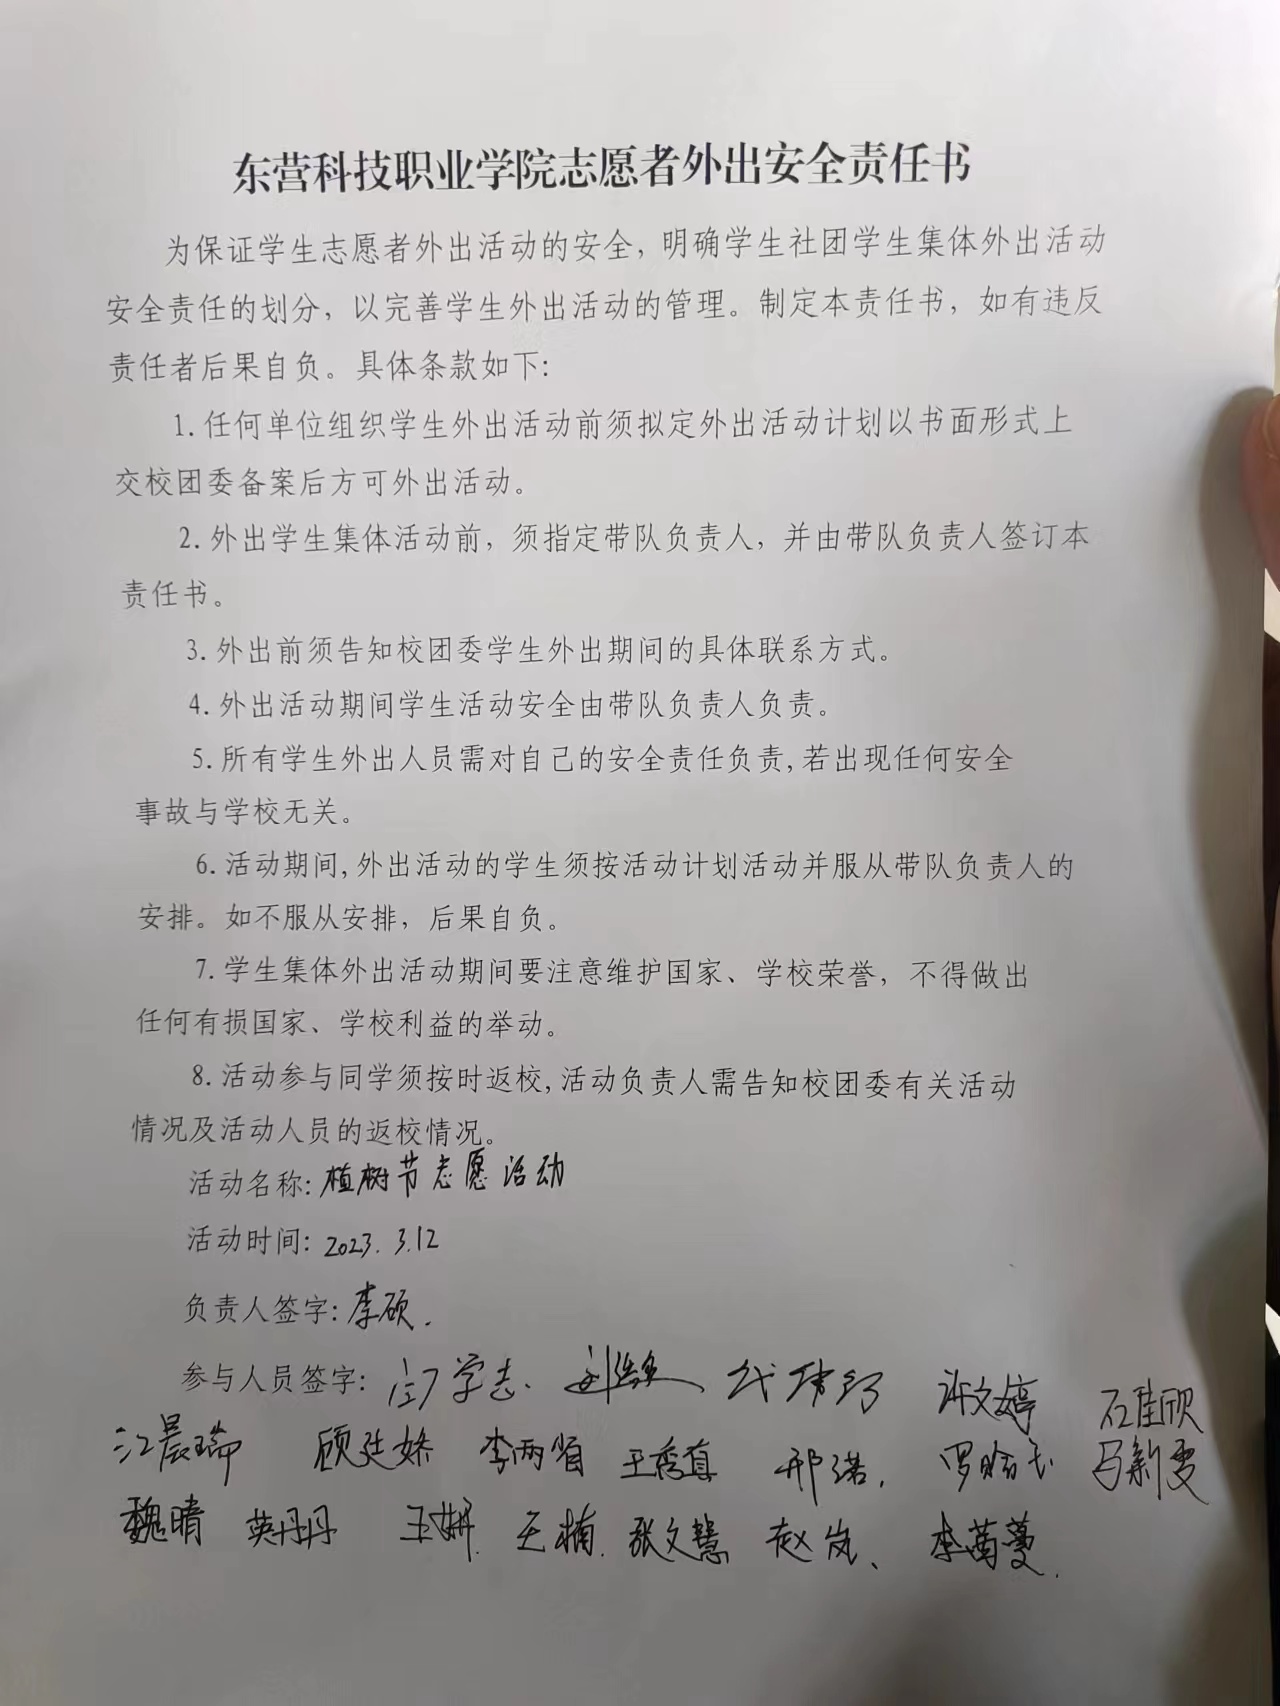 东营科技职业学院志愿者外出安全责任书
为保证学生志愿者外出活动的安全，明确学生社团学生集体外出活动
安全责任的划分，以完善学生外出活动的管理。制定本责任书，如有违反
责任者后果自负。具体条款如下：
1.任何单位组织学生外出活动前须拟定外出活动计划以书面形式上
交校团委备案后方可外出活动。
2.外出学生集体活动前，须指定带队负责人，并由带队负责人签订本
责任书。
3.外出前须告知校团委学生外出期间的具体联系方式。
4.外出活动期间学生活动安全由带队负责人负责。
5.所有学生外出人员需对自己的安全责任负责,若出现任何安全
事故与学校无关。
6.活动期间,外出活动的学生须按活动计划活动并服从带队负责人的
安排。如不服从安排，后果自负。
7.学生集体外出活动期间要注意维护国家、学校荣誉，不得做出
任何有损国家、学校利益的举动。
8.活动参与同学须按时返校,活动负责人需告知校团委有关活动
情况及活动人员的返校情况。
活动名称:植树节志愿活动
活动时间: 2023.3.12
负责人签字:李硕.
参与人员签字: 许文婷 石佳欣
江晨瑞 顾廷娇 王秀真 邢诺. 马新雯
魏晴 英丹丹 王妍. 王楠. 张文慧 赵岚、 李茵蔓.